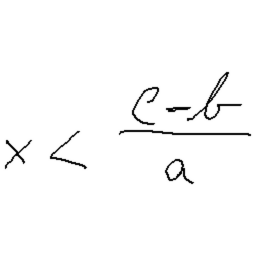 x < \frac{c-b}{a}